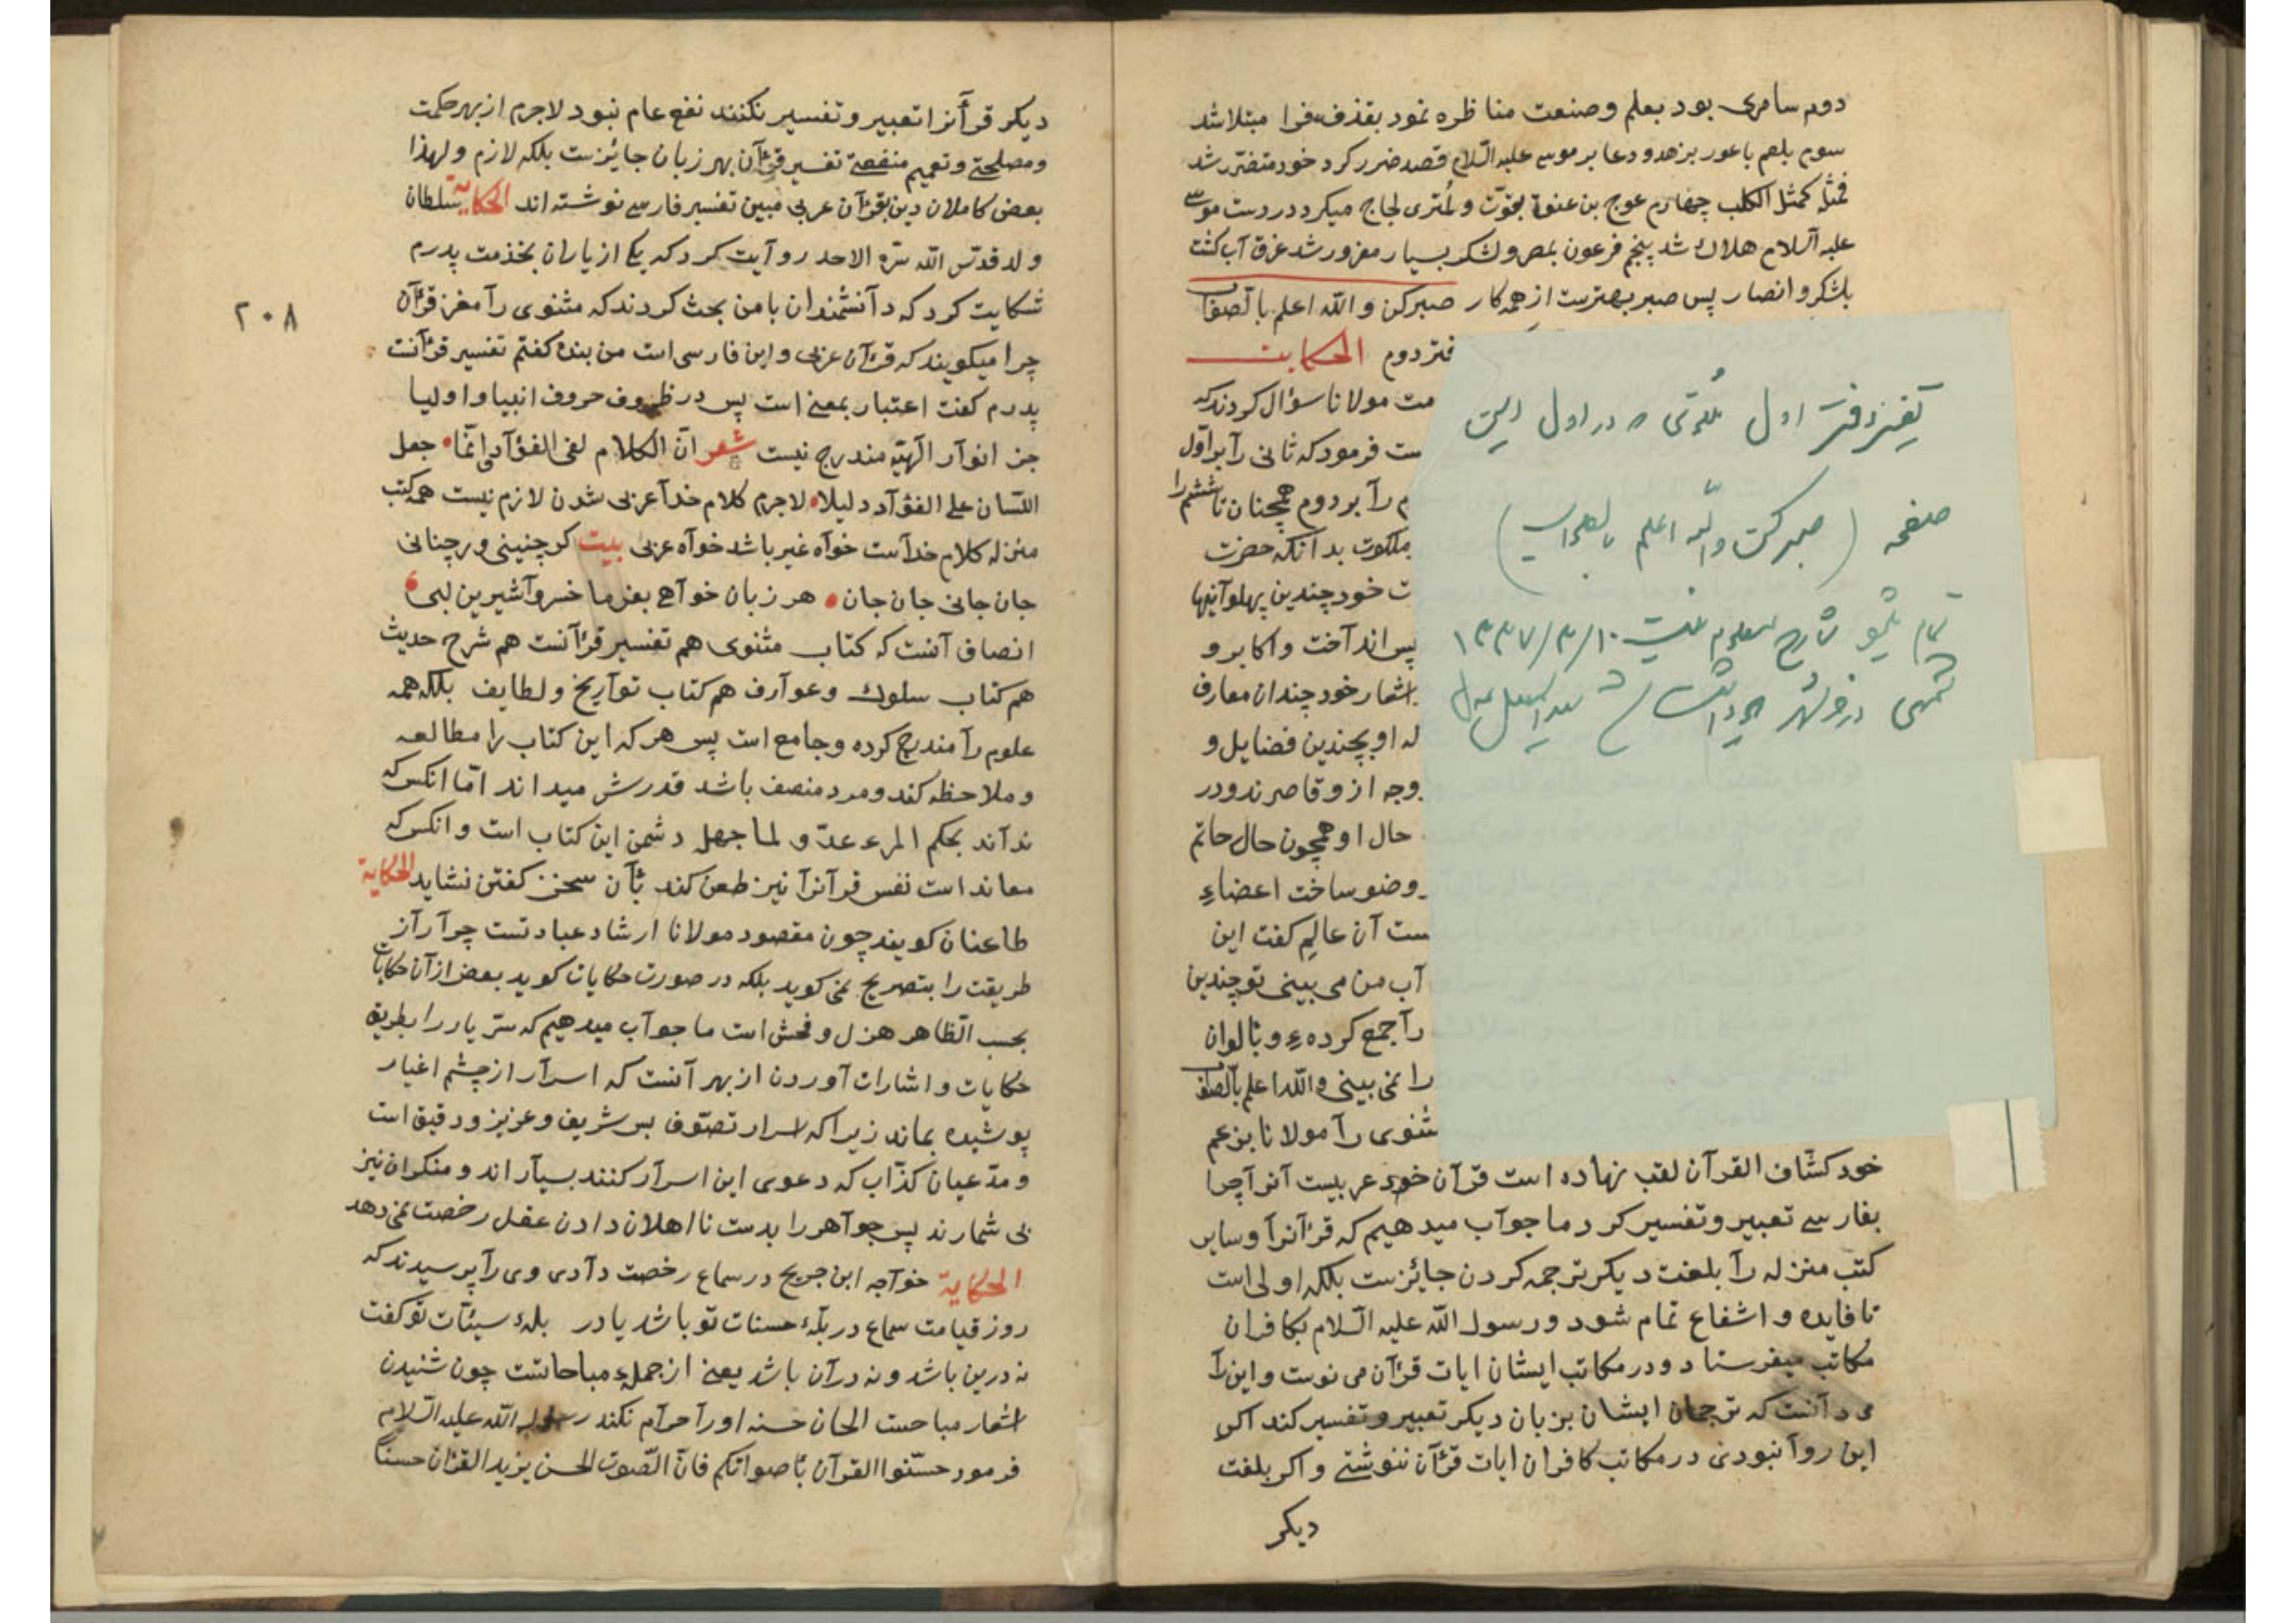 دوم سامری بود بعلم و صنعت مناظره نمود بقذف فرا مبتلا شد
سوم بلعم باعور بزهد و دعا بر موسی علیه السّلام قصد ضرر کرد خود متضرّر شد
فمثله کمثل الکلب چهارم عوج بن عنوق بقوّت و لجاج میکرد در دست موسی
علیه السلام هلاك شد پنجم فرعون بمصر و لشکر بسیار مغرور شد غرق آب کشت
بلشکر و انصار پس صبر بهترست از همه کار صبر کن و الله اعلم بالصواب
فتر دوم الحکایت
مت مولانا سؤال کردند که
ست فرمود که ثانی رآ بر اوّل
م رآ بر دوم همچنان تا ششم را
ملکوت بدانکه حضرت
ت خود چندین پهلو آنیها
پس اندآخت و اکابر و
اشعار خود چندان معارف
له او بچندین فضایل و
وجه ازو قاصرند و در
حال او همچون حال حاتم
وضو ساخت اعضاء
ست آن عالم کفت این
آب من می بینی تو چندین
رآ جمع کرده ء و بالوان
را نمی بینی و الله اعلم بالصواب
مثنوی رآ مولانا بزعم
خود کشّاف القرآن لقب نهاده است قرآن خود عربیست آنرآ چرا
بفارسی تعبیر و تفسیر کرد ما جوآب میدهیم که قرآنرآ و سایر
کتب منزله رآ بلغت دیکر ترجمه کردن جایزست بلکه اولی است
تا فایده و اشفاع تمام شود و رسول الله علیه السّلام بکافران
مکاتب میفرستاد و در مکاتب ایشان ایات قرآن می نوست و این رآ
می دآنست که ترجمان ایشان بزبان دیکر تعبیر و تفسیر کند اکر
این روآ نبودی در مکاتب کافران ایات قرآن ننوشتی و اکر بلغت
دیکر
دفتر اول در اول این
صفحه (صبر کن و الله اعلم بالصواب)
تمام ۱۳۳۷/۳/۱۰
شمسی
دیکر قرآنرا تعبیر و تفسیر نکنند نفع عام نبود لاجرم از بهر حکمت
و مصلحتی و تعمیم منفعتی تفسیر قرآن بهر زبان جایزست بلکه لازم و لهذا
بعض کاملان دین بقرآن عربی مبین تفسیر فارسی نوشته اند الحکایة سلطان
ولد قدّس الله سرّه الاحد روآیت کرد که یکی از یاران بخذمت پدرم
شکایت کرد که دآنشمندان با من بحث کردند که مثنوی رآ مغز قرآن
۲۰۸
چرا میکویند که قرآن عربی و این فارسی است من بنده کفتم تفسیر قرآنت
پدرم کفت اعتبار بمعنی است پس در ظروف حروف انبیا و اولیا
جز انوآر الهیّه مندرج نیست شعر انّ الکلام لفی الفؤآد و انّما جعل
اللّسان علی الفؤآد دلیلا لاجرم کلام خدآ عربی شدن لازم نیست همه کتب
منزله کلام خدآست خوآه غیر باشد خوآه عربی بیت کر چنینی ور چنانی
جان جانی جان جان هر زبان خوآهی بفرما خسروآ شیرین لبی
انصاف آنست که کتاب مثنوی هم تفسیر قرآنست هم شرح حدیث
هم کتاب سلوك و عوآرف هم کتاب توآریخ و لطایف بلکه همه
علوم رآ مندرج کرده و جامع است پس هر که این کتاب را مطالعه
و ملاحظه کند و مرد منصف باشد قدرش میداند امّا انکس که
ندآند بحکم المرء عدوّ لما جهل دشمن این کتاب است و انکس که
معاند است نفس قرآنرآ نیز طعن کند بآن سخن کفتن نشاید الحکایة
طاعنان کویند چون مقصود مولانا ارشاد عبادتست چرآ رآز
طریقت را بتصریح نمی کوید بلکه در صورت حکایات کوید بعض از آن حکایات
بحسب الظاهر هزل و فحش است ما جوآب میدهیم که سرّ یار را بطریق
حکایات و اشارات آوردن از بهر آنست که اسرآر از چشم اغیار
پوشیده بماند زیرا که اسرار تصوّف بس شریف و عزیز و دقیق است
و مدّعیان کذّاب که دعوی این اسرآر کنند بسیآر اند و منکران نیز
بی شمارند پس جوآهر را بدست نا اهلان دادن عقل رخصت نمی دهد
الحکایة خوآجه ابن جریح در سماع رخصت دآدی وی رآ پرسیدند که
روز قیامت سماع در پلّهٔ حسنات تو باشد یا در پلهٔ سیئات تو کفت
نه درین باشد و نه در آن باشد یعنی از جملهء مباحاتست چون شنیدن
اشعار مباحست الحان حسنه اورآ حرآم نکند رسول الله علیه السّلام
فرمود حسّنوا القرآن باصواتکم فانّ الصّوت الحسن یزید القرآن حسنا